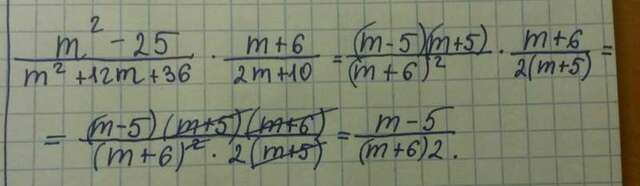 m² - 25 / m² + 12m + 36 · m + 6 / 2m + 10 = (m - 5)(m + 5) / (m + 6)² · m + 6 / 2(m + 5) =
= (m - 5)(m + 5)(m + 6) / (m + 6)² · 2(m + 5) = m - 5 / (m + 6)2.